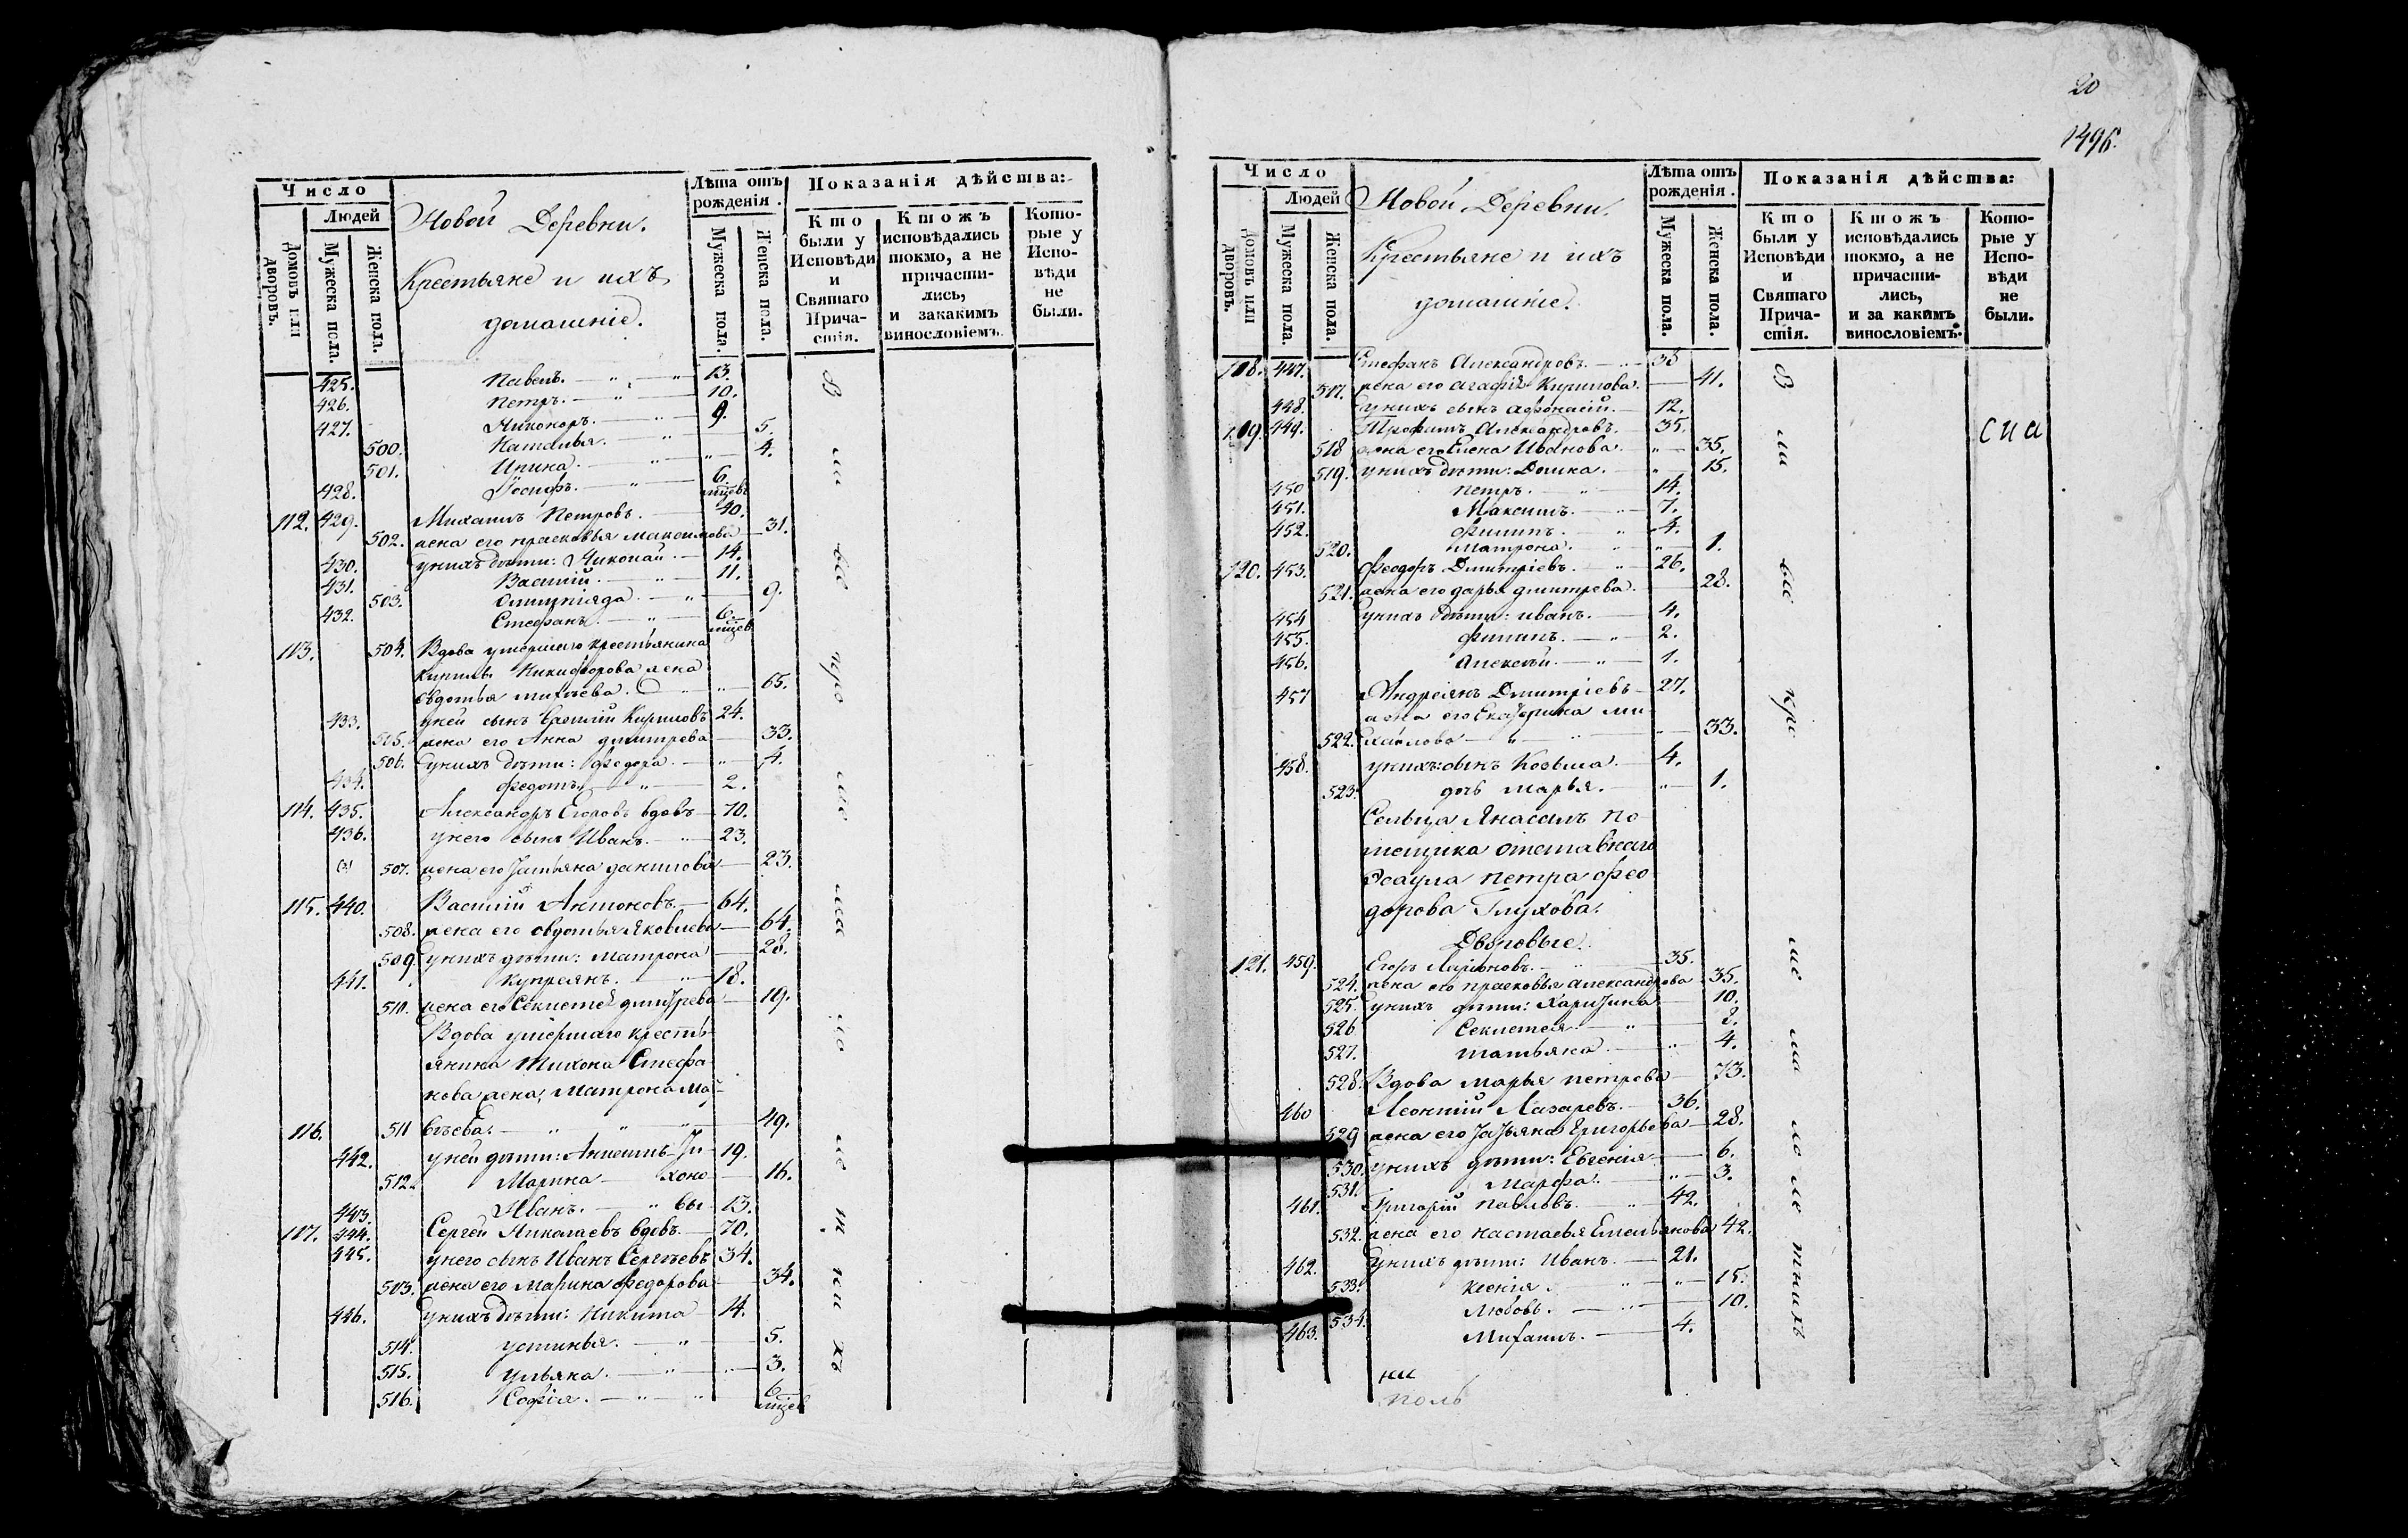 Число
Людей
Домовъ или дворовъ.
Мужеска пола.
Женска пола.
Новой Деревни.
Крестьяне и ихъ
домашніе.
Лѣта отъ рожденія.
Мужеска пола.
Женска пола.
Показанія дѣйства:
Кто были у Исповѣди и Святаго Причастія.
Ктожъ исповѣдались токмо, а не причастились, и закакимъ винословіемъ.
Которые у Исповѣди не были.
425. Павелъ. 13.
426. Петръ. 10.
427. Никоноръ. 9.
500. Наталья. 5.
501. Ирина. 4.
428. Іосифъ. 6. мцовъ
112. 429. Михаилъ Петровъ. 40.
502. жена его Прасковья Максимова 31.
430. у нихъ дѣти: Николай. 14.
431. Василій. 11.
503. Олимпіяда. 9.
432. Стефанъ. 6. мцов.
113. 504. Вдова умершаго крестьянина
Кирилы Никифорова жена
Евдотья 65.
433. у ней сынъ Василій Кириловъ 24.
505. жена его Анна Дмитрева 33.
506. у нихъ дѣти: Федора. 4.
434. Федотъ. 2.
114. 435. Александръ Егоровъ вдовъ 70.
436. у него сынъ Иванъ. 23.
507. жена его Татьяна Данилова 23.
115. 440. Василій Антоновъ. 64.
508. жена его Овдотья Яковлева 64.
509. у нихъ дѣти: Матрона 28.
441. Купреянъ. 18.
510. жена его Секлетея Дмитрева 19.
Вдова умершаго кресть-
янина Тихона Стефа-
нова жена, Матрона Ма-
116. 511 вѣева. 49.
442. у ней дѣти: Ти- 19.
512. Марина хоно 16.
443. Иванъ. вы 13.
117. 444. Сергей Николаевъ вдовъ. 70.
445. у него сынъ Иванъ Сергѣевъ 34.
513. жена его Марина Федорова 34.
446. у нихъ дѣти: Никита 14.
514. Устинья. 5.
515. Ульяна. 3.
516. Софія. 6 мцов
20
1496.
Число
Людей
Домовъ или дворовъ.
Мужеска пола.
Женска пола.
Новой Деревни.
Крестьяне и ихъ
домашніе.
Лѣта отъ рожденія.
Мужеска пола.
Женска пола.
Показанія дѣйства:
Кто были у Исповѣди и Святаго Причастія.
Ктожъ исповѣдались токмо, а не причастились, и за какимъ винословіемъ.
Которые у Исповѣди не были.
118. 447. Стефанъ Александровъ. 38
517. жена его Агафія Кирилова. 41.
448. у нихъ сынъ Афонасій. 12.
119. 449. Трофимъ Александровъ. 35.
518 жена его Елена Иванова. 35.
519. у нихъ дѣти: Домна. 15.
450 Петръ. 14.
451. Максимъ. 7.
452. Филипъ. 4.
520. Матрона. 1.
120. 453. Феодоръ Дмитріевъ. 26.
521. жена его Дарья Дмитрева. 28.
454 у нихъ дѣти: Иванъ. 4.
455. Филипъ. 2.
456. Алексѣй. 1.
457 Андреянъ Дмитріевъ 27.
жена его Екатерина Ми-
522. хайлова 33.
458. у нихъ: сынъ Козьма. 4.
523. дочь Марья. 1.
Сельца Янассылъ по-
мещика отставнаго
Эсаула Петра Фео-
дорова Глухова.
Дворовые.
121. 459. Егоръ Ларіоновъ. 35.
524. жена его Прасковья Александрова 35.
525. у нихъ дѣти: Харитина 10.
526 Секлетея
527. Татьяна. 4.
528. Вдова Марья Петрова 73.
460 Леонтій Лазаревъ. 36.
529 жена его Татьяна Григорьева 28.
530. у нихъ дѣти: Евгенія 6.
531. Марфа. 3.
461. Григорій Павловъ. 42.
532. жена его Настасья Емельянова 42.
462. у нихъ дѣти: Иванъ. 21.
533. Ксенія. 15.
534. Любовь. 10.
463. Михаилъ. 4.
поль